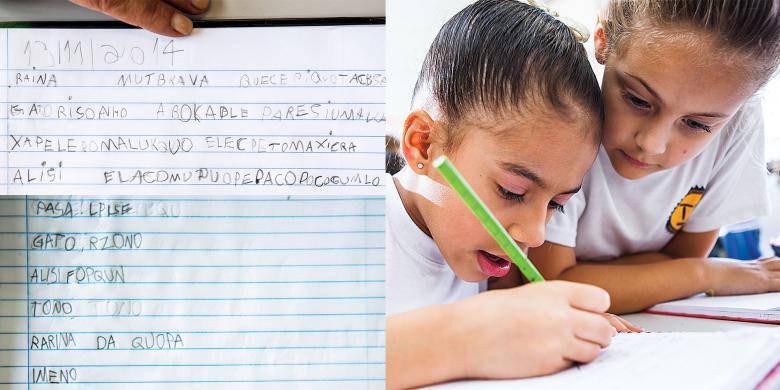 13/11/2014
RAINA MUTBRAVA QUECEPIQUOTACBSA
GATO RISOANHO A BOKADLE PARESIUMALU
XAPELEROMALUKUO ELECPETOMAXIERA
ALISI ELACOMUDUOPEDACOPOCOGUMLO
GATO, RZONO
ALISI FOPGUN
TONO TONO
RARINA DA QUOPA
IMENO